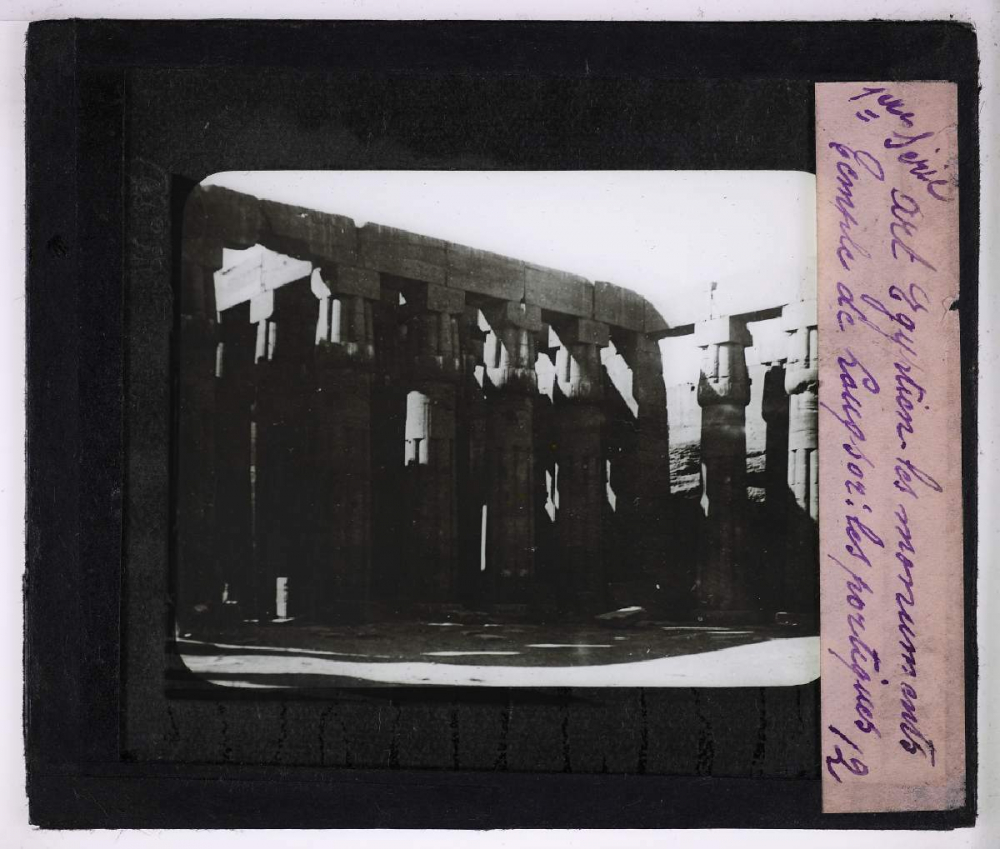 1ère Série Art Egyptien - les monuments
1° Temple de Louqsor : les portiques 12